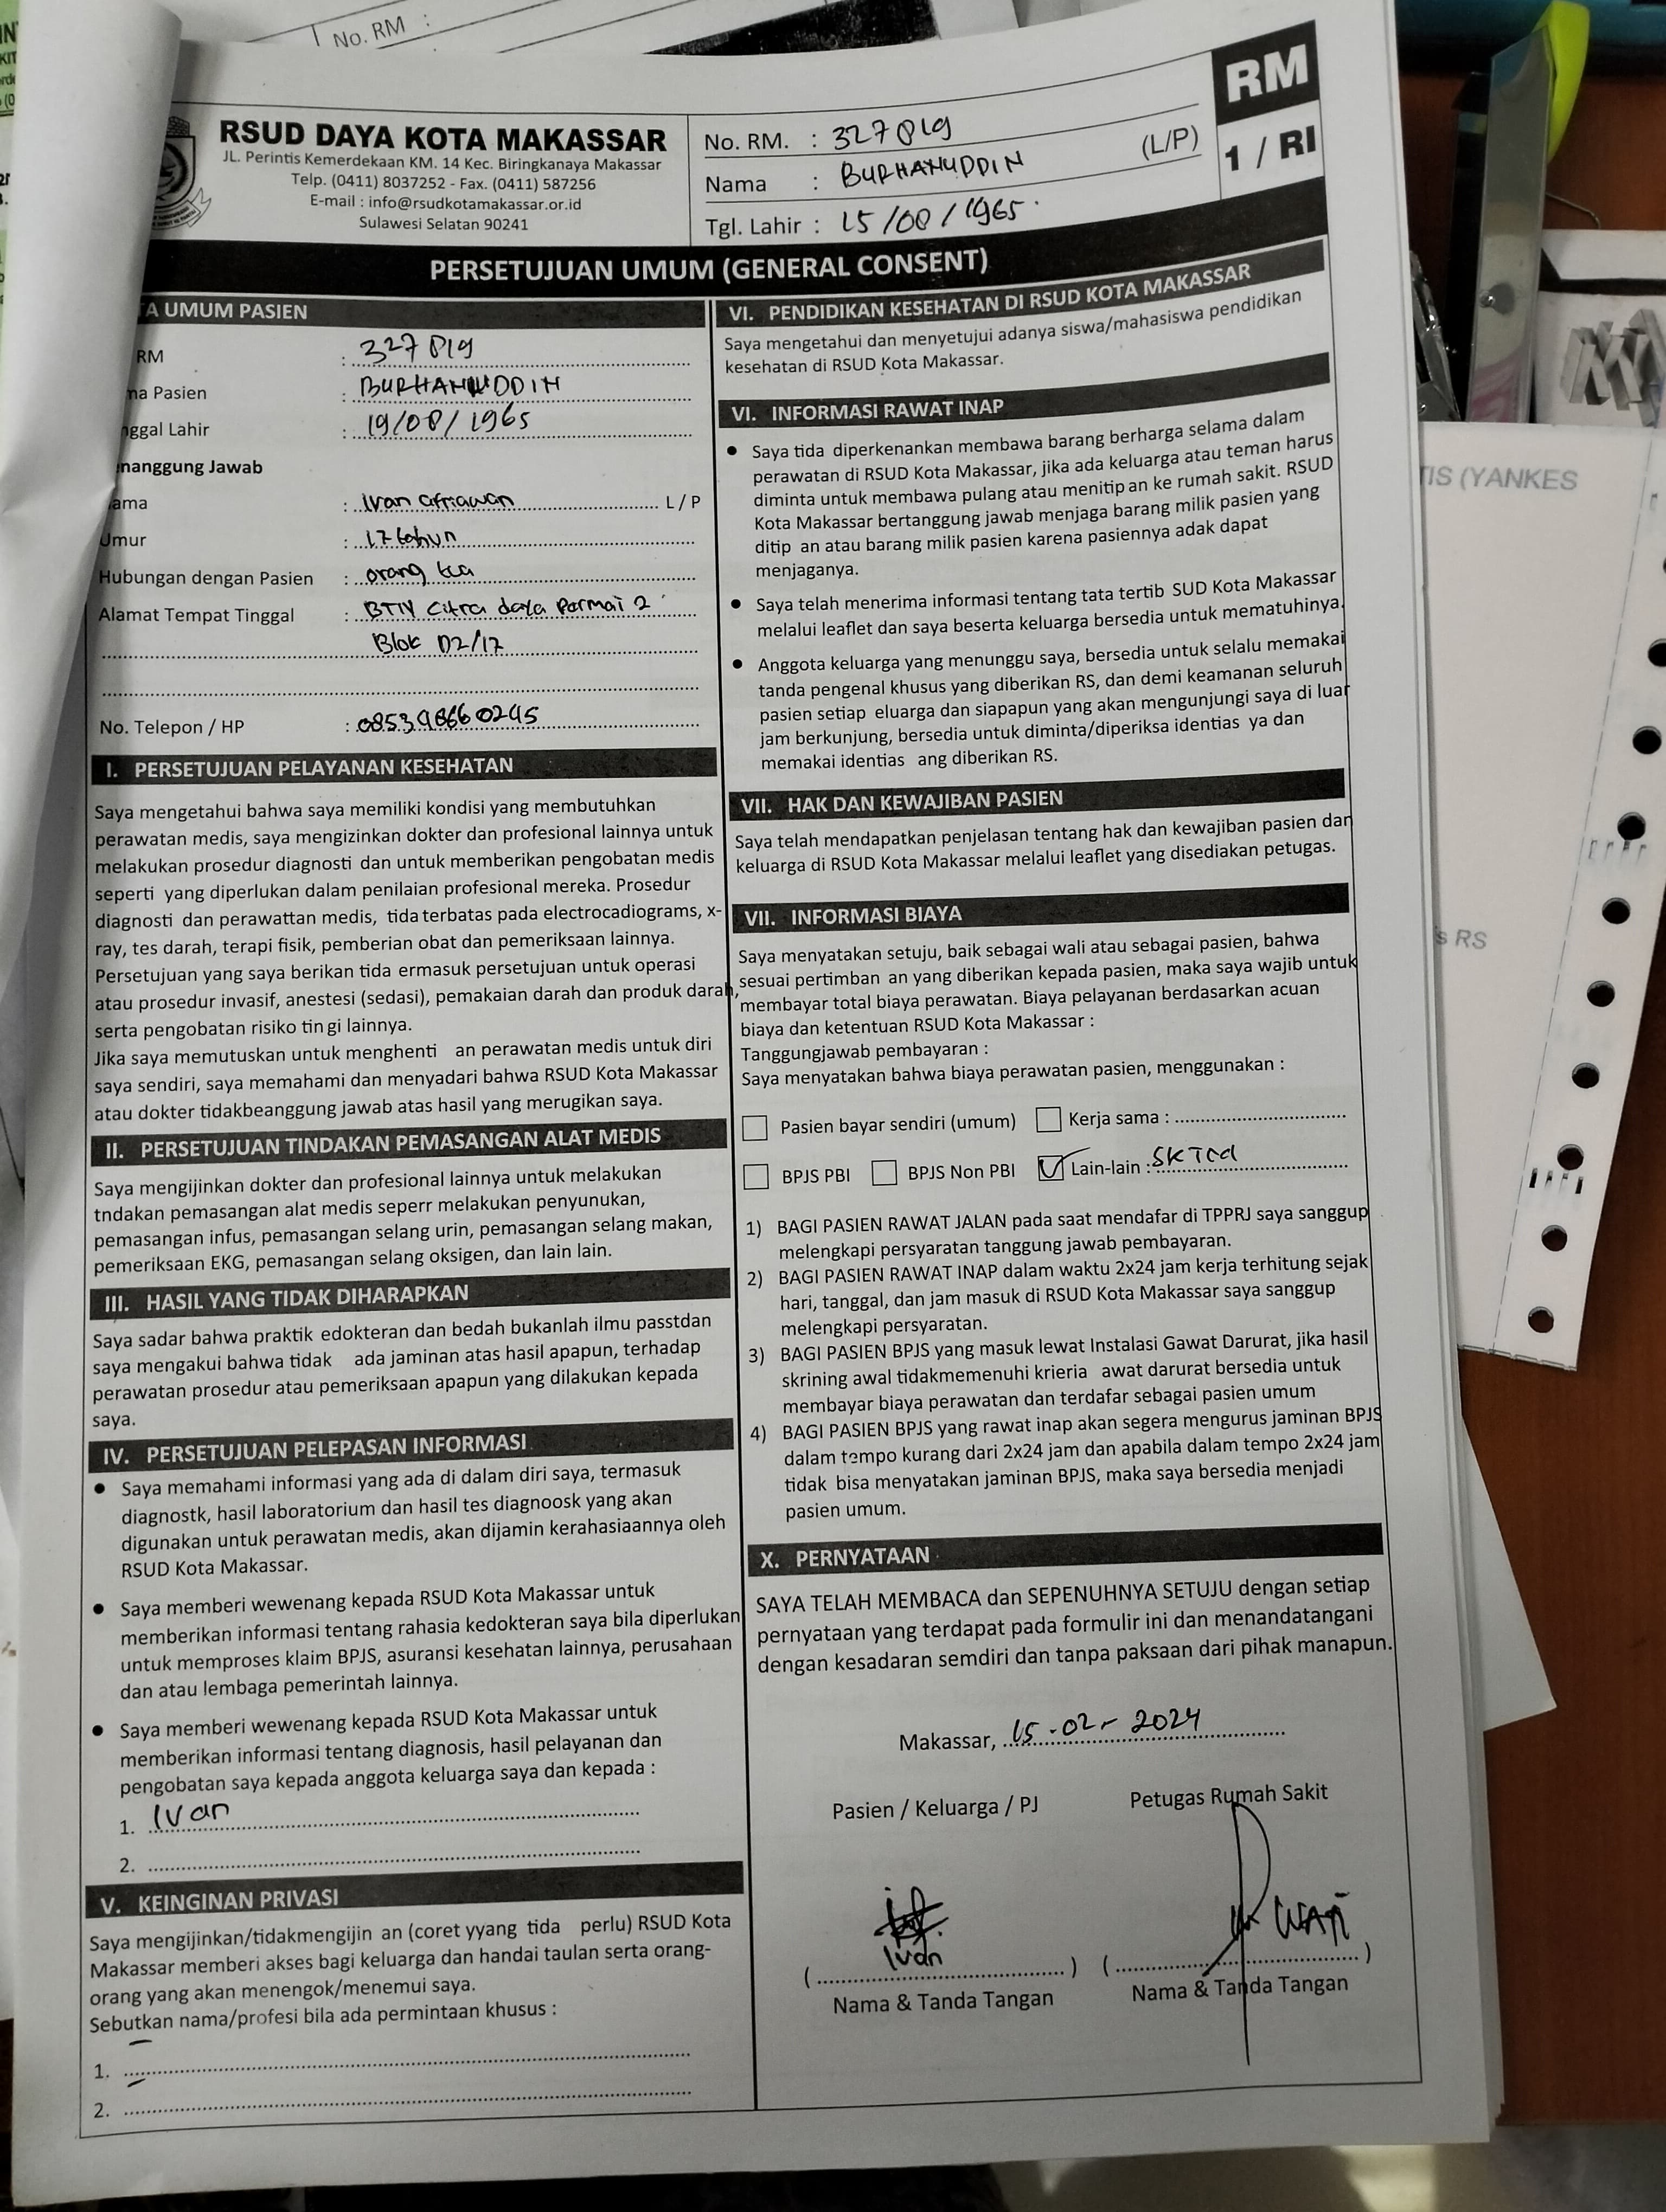 No. RM :
RSUD DAYA KOTA MAKASSAR
JL. Perintis Kemerdekaan KM. 14 Kec. Biringkanaya Makassar
Telp. (0411) 8037252 - Fax. (0411) 587256
E-mail : info@rsudkotamakassar.or.id
Sulawesi Selatan 90241
No. RM. : 327819
Nama : BURHANUDDIN (L/P)
Tgl. Lahir : 15/08/1965
RM
1 / RI
PERSETUJUAN UMUM (GENERAL CONSENT)
A UMUM PASIEN
RM : 327819
na Pasien : BURHANUDDIN
nggal Lahir : 19/08/1965
nanggung Jawab
ama : Ivan afriawan L / P
Umur : 17 tahun
Hubungan dengan Pasien : orang tua
Alamat Tempat Tinggal : BTN Citra daya Permai 2
Blok D2/17
No. Telepon / HP :
I. PERSETUJUAN PELAYANAN KESEHATAN
Saya mengetahui bahwa saya memiliki kondisi yang membutuhkan
perawatan medis, saya mengizinkan dokter dan profesional lainnya untuk
melakukan prosedur diagnosti dan untuk memberikan pengobatan medis
seperti yang diperlukan dalam penilaian profesional mereka. Prosedur
diagnosti dan perawattan medis, tida terbatas pada electrocadiograms, x-
ray, tes darah, terapi fisik, pemberian obat dan pemeriksaan lainnya.
Persetujuan yang saya berikan tida ermasuk persetujuan untuk operasi
atau prosedur invasif, anestesi (sedasi), pemakaian darah dan produk darah,
serta pengobatan risiko tin gi lainnya.
Jika saya memutuskan untuk menghenti an perawatan medis untuk diri
saya sendiri, saya memahami dan menyadari bahwa RSUD Kota Makassar
atau dokter tidakbeanggung jawab atas hasil yang merugikan saya.
II. PERSETUJUAN TINDAKAN PEMASANGAN ALAT MEDIS
Saya mengijinkan dokter dan profesional lainnya untuk melakukan
tndakan pemasangan alat medis seperr melakukan penyunukan,
pemasangan infus, pemasangan selang urin, pemasangan selang makan,
pemeriksaan EKG, pemasangan selang oksigen, dan lain lain.
III. HASIL YANG TIDAK DIHARAPKAN
Saya sadar bahwa praktik edokteran dan bedah bukanlah ilmu passtdan
saya mengakui bahwa tidak ada jaminan atas hasil apapun, terhadap
perawatan prosedur atau pemeriksaan apapun yang dilakukan kepada
saya.
IV. PERSETUJUAN PELEPASAN INFORMASI
• Saya memahami informasi yang ada di dalam diri saya, termasuk
diagnostk, hasil laboratorium dan hasil tes diagnoosk yang akan
digunakan untuk perawatan medis, akan dijamin kerahasiaannya oleh
RSUD Kota Makassar.
• Saya memberi wewenang kepada RSUD Kota Makassar untuk
memberikan informasi tentang rahasia kedokteran saya bila diperlukan
untuk memproses klaim BPJS, asuransi kesehatan lainnya, perusahaan
dan atau lembaga pemerintah lainnya.
• Saya memberi wewenang kepada RSUD Kota Makassar untuk
memberikan informasi tentang diagnosis, hasil pelayanan dan
pengobatan saya kepada anggota keluarga saya dan kepada :
1. Ivan
2.
V. KEINGINAN PRIVASI
Saya mengijinkan/tidakmengijin an (coret yyang tida perlu) RSUD Kota
Makassar memberi akses bagi keluarga dan handai taulan serta orang-
orang yang akan menengok/menemui saya.
Sebutkan nama/profesi bila ada permintaan khusus :
1. –
2. –
VI. PENDIDIKAN KESEHATAN DI RSUD KOTA MAKASSAR
Saya mengetahui dan menyetujui adanya siswa/mahasiswa pendidikan
kesehatan di RSUD Kota Makassar.
VI. INFORMASI RAWAT INAP
• Saya tida diperkenankan membawa barang berharga selama dalam
perawatan di RSUD Kota Makassar, jika ada keluarga atau teman harus
diminta untuk membawa pulang atau menitip an ke rumah sakit. RSUD
Kota Makassar bertanggung jawab menjaga barang milik pasien yang
ditip an atau barang milik pasien karena pasiennya adak dapat
menjaganya.
• Saya telah menerima informasi tentang tata tertib SUD Kota Makassar
melalui leaflet dan saya beserta keluarga bersedia untuk mematuhinya.
• Anggota keluarga yang menunggu saya, bersedia untuk selalu memakai
tanda pengenal khusus yang diberikan RS, dan demi keamanan seluruh
pasien setiap eluarga dan siapapun yang akan mengunjungi saya di luar
jam berkunjung, bersedia untuk diminta/diperiksa identias ya dan
memakai identias ang diberikan RS.
VII. HAK DAN KEWAJIBAN PASIEN
Saya telah mendapatkan penjelasan tentang hak dan kewajiban pasien dan
keluarga di RSUD Kota Makassar melalui leaflet yang disediakan petugas.
VII. INFORMASI BIAYA
Saya menyatakan setuju, baik sebagai wali atau sebagai pasien, bahwa
sesuai pertimban an yang diberikan kepada pasien, maka saya wajib untuk
membayar total biaya perawatan. Biaya pelayanan berdasarkan acuan
biaya dan ketentuan RSUD Kota Makassar :
Tanggungjawab pembayaran :
Saya menyatakan bahwa biaya perawatan pasien, menggunakan :
Pasien bayar sendiri (umum) Kerja sama :
BPJS PBI BPJS Non PBI Lain-lain :
1) BAGI PASIEN RAWAT JALAN pada saat mendafar di TPPRJ saya sanggup
melengkapi persyaratan tanggung jawab pembayaran.
2) BAGI PASIEN RAWAT INAP dalam waktu 2x24 jam kerja terhitung sejak
hari, tanggal, dan jam masuk di RSUD Kota Makassar saya sanggup
melengkapi persyaratan.
3) BAGI PASIEN BPJS yang masuk lewat Instalasi Gawat Darurat, jika hasil
skrining awal tidakmemenuhi krieria awat darurat bersedia untuk
membayar biaya perawatan dan terdafar sebagai pasien umum
4) BAGI PASIEN BPJS yang rawat inap akan segera mengurus jaminan BPJS
dalam tempo kurang dari 2x24 jam dan apabila dalam tempo 2x24 jam
tidak bisa menyatakan jaminan BPJS, maka saya bersedia menjadi
pasien umum.
X. PERNYATAAN
SAYA TELAH MEMBACA dan SEPENUHNYA SETUJU dengan setiap
pernyataan yang terdapat pada formulir ini dan menandatangani
dengan kesadaran semdiri dan tanpa paksaan dari pihak manapun.
Makassar, 15-02-2024
Pasien / Keluarga / PJ Petugas Rumah Sakit
Ivan
Nama & Tanda Tangan Nama & Tanda Tangan
TIS (YANKES
s RS